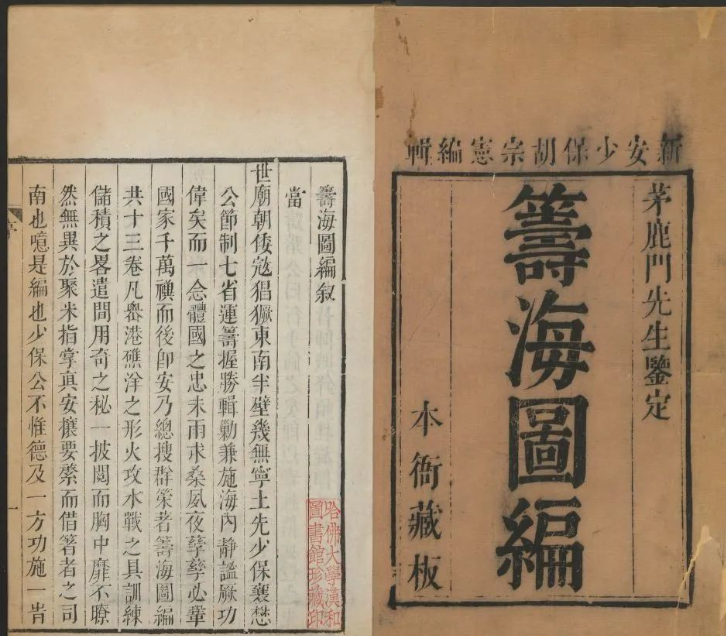 新安少保胡宗憲編輯
茅鹿門先生鑒定
籌海圖編
本衙藏板
籌海圖編敘
當
世廟朝倭寇猖獗東南半壁幾無寧土先少保襃懋
公節制七省運籌握勝輯勦兼施海內靜謐厥功
偉矣而一念體國之忠未雨求桑夙夜孳孳必鞏
國家千萬禩而後卽安乃總搜群策者籌海圖編
共十三卷凡嶴港礁洋之形火攻水戰之具訓練
儲積之畧遣間用奇之秘一披閱而胸中靡不瞭
然無異於聚米指掌眞安攘要藁而借箸者之司
南也噫是編也少保公不惟德及一方功施一時
一
哈佛大學漢和
圖書館珍藏印